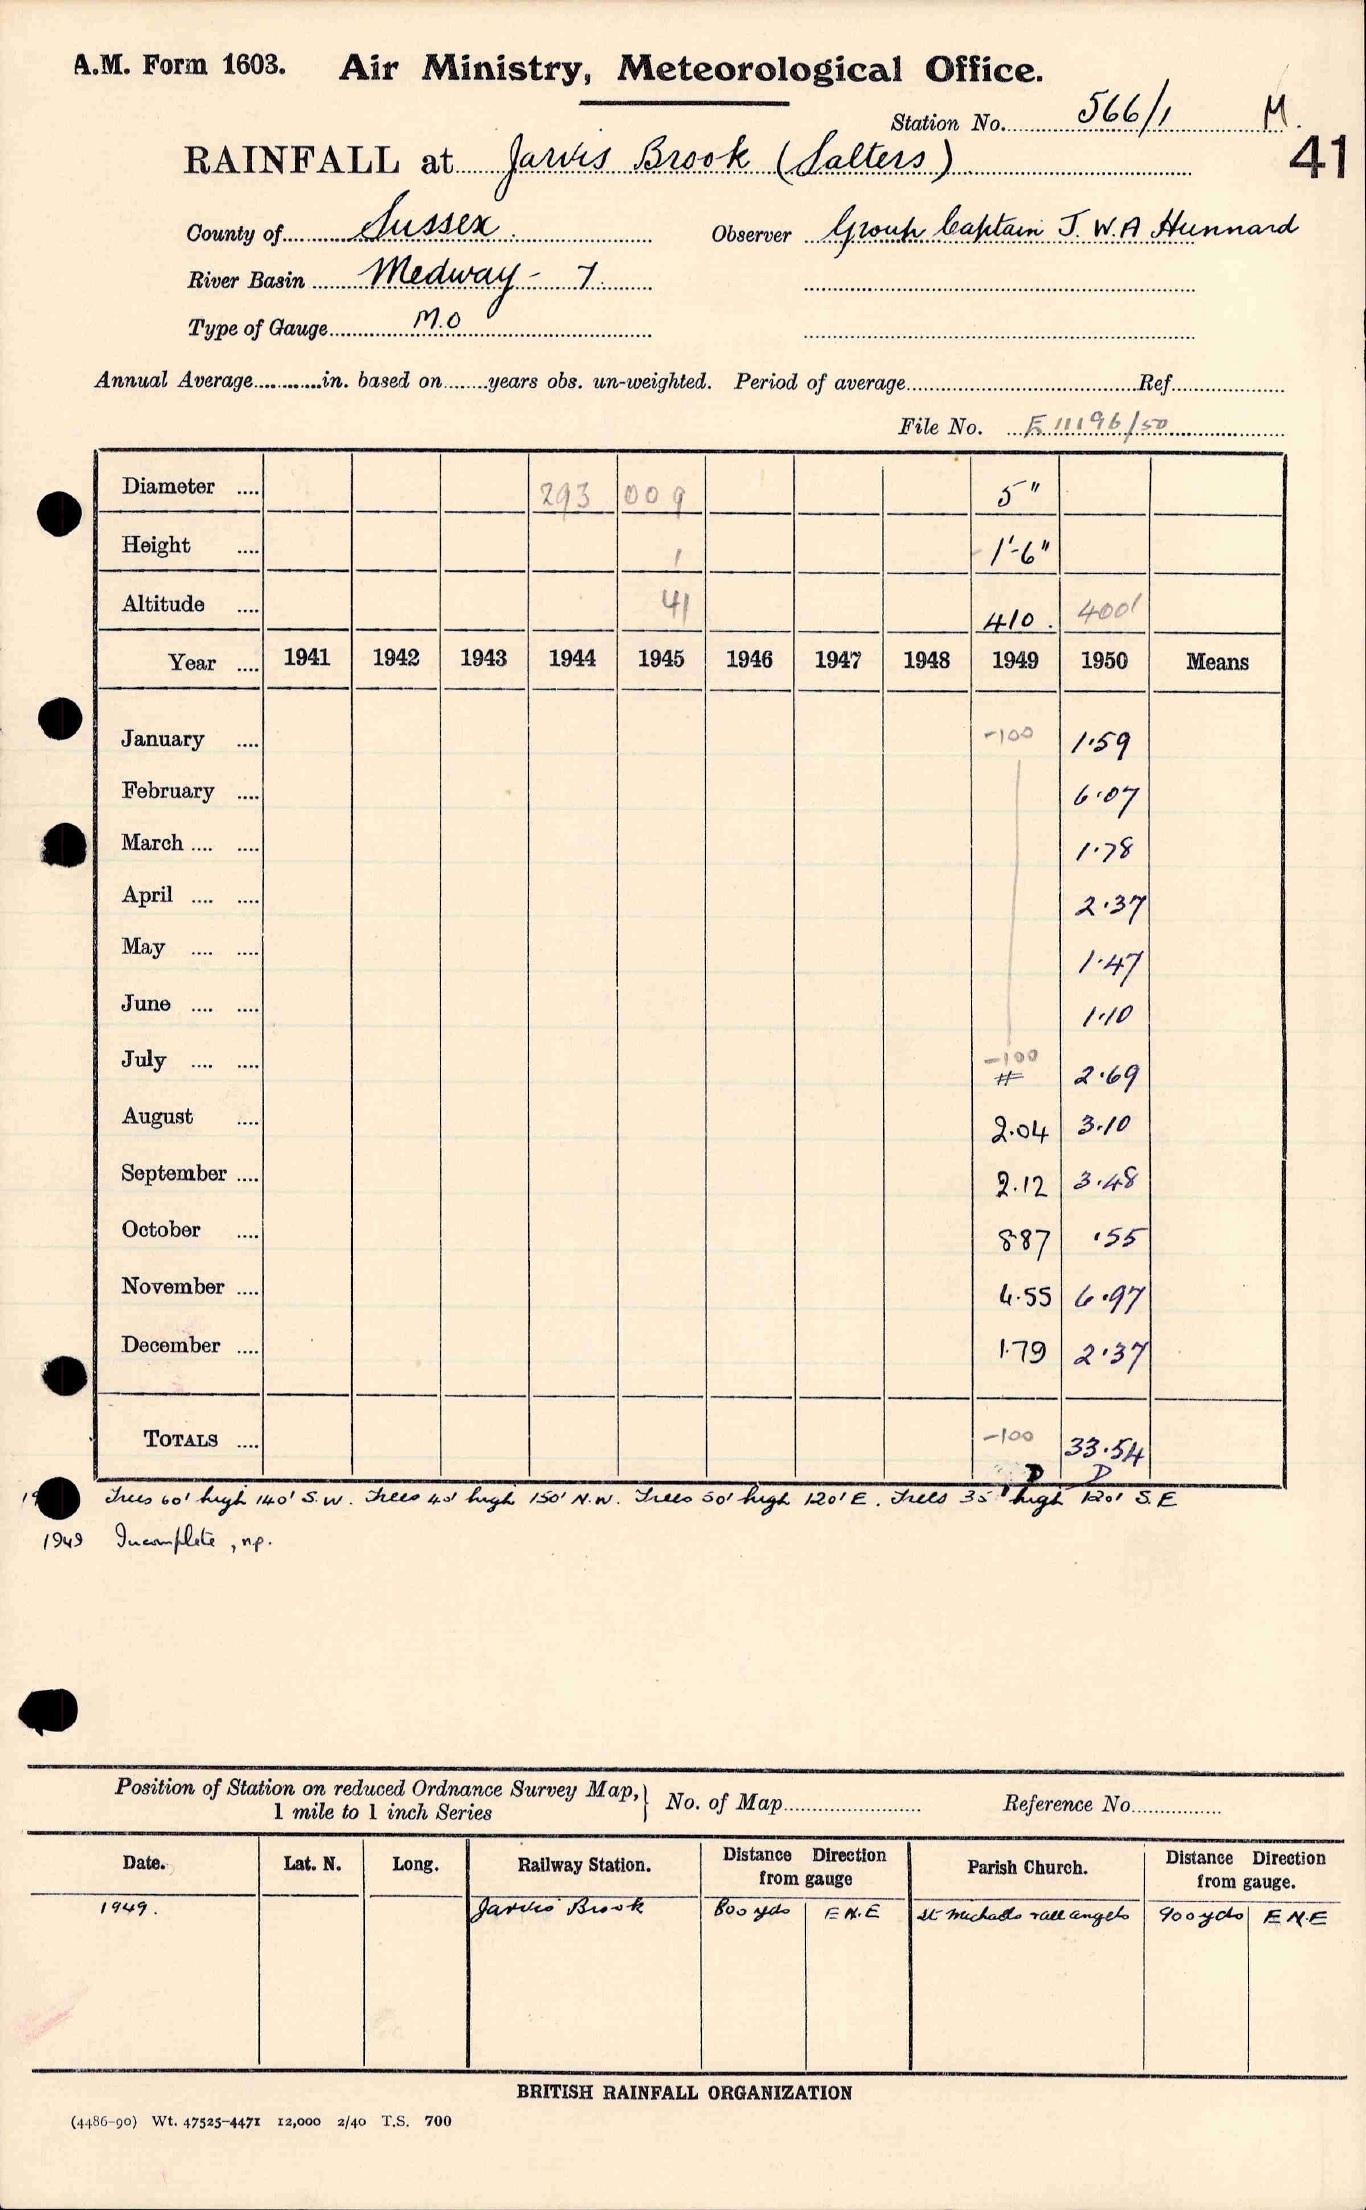 A.M. Form 1603. Air Ministry, Meteorological Office.
Station No. 566/1 M.
41
RAINFALL at Jarvis Brook (Salters)
County of Sussex. Observer Group Captain J. W. A Hunnard
River Basin Medway - 7.
Type of Gauge M.O
Annual Average............in. based on........years obs. un-weighted. Period of average Ref.
File No. E 11196/50
Diameter .... 293 009 5"
Height .... 1 1'-6"
Altitude .... 41 410. 400'
Year .... 1941 1942 1943 1944 1945 1946 1947 1948 1949 1950 Means
January .... -100 1.59
February .... 6.07
March .... .... 1.78
April .... .... 2.37
May .... .... 1.47
June .... .... 1.10
July .... .... -100 # 2.69
August .... 2.04 3.10
September .... 2.12 3.48
October .... 8.87 .55
November .... 4.55 6.97
December .... 1.79 2.37
TOTALS .... -100 33.54
D D
Trees 60' high 140' S.W. Trees 40' high 150' N.W. Trees 50' high 120' E. Trees 35' high 120' S.E
1949 Incomplete, n.p.
Position of Station on reduced Ordnance Survey Map,} No. of Map Reference No.
1 mile to 1 inch Series
Date. Lat. N. Long. Railway Station. Distance Direction from gauge Parish Church. Distance Direction from gauge.
1949. Jarvis Brook 800 yds E N.E St Michaels & all angels 900 yds E N.E
BRITISH RAINFALL ORGANIZATION
(4486-90) Wt. 47525-4471 12,000 2/40 T.S. 700